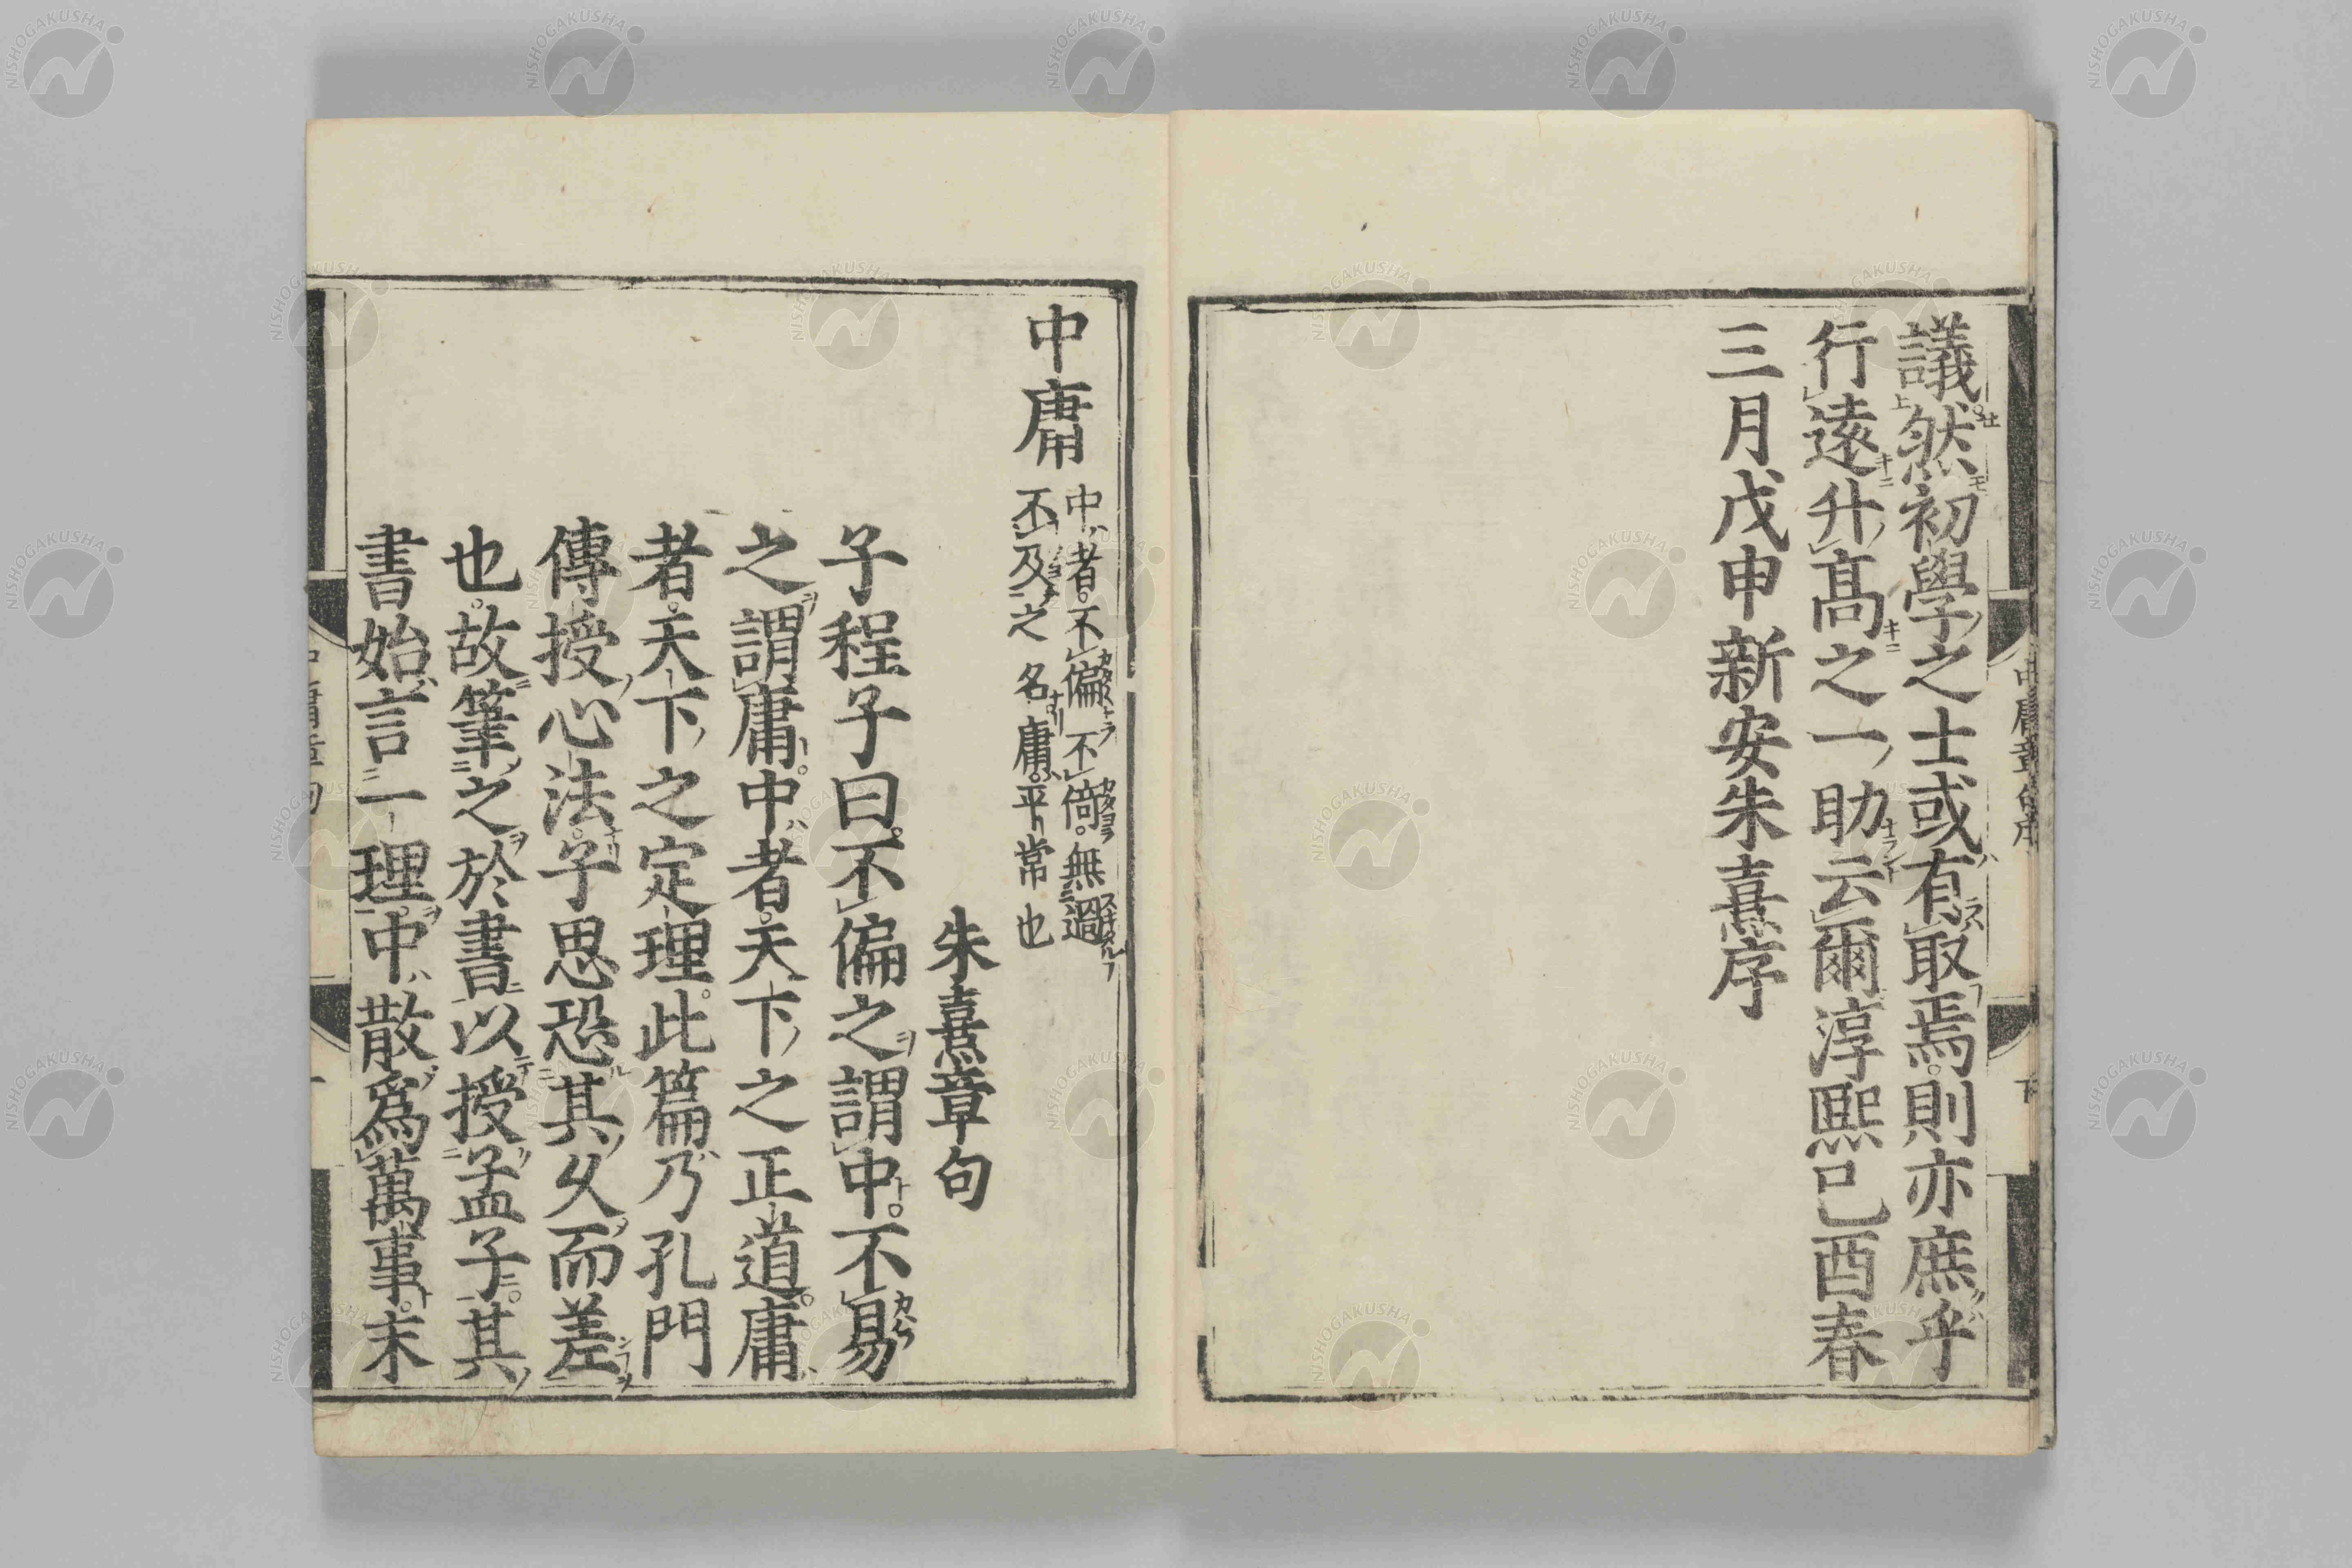 議然初學之士或有取焉則亦庶乎
行遠升髙之一助云爾淳熙己酉春
三月戊申新安朱熹序
中庸章句序
中庸
中者。不偏不倚。無過
不及之名。庸。平常也
朱熹章句
子程子曰。不偏之謂中。不易
之謂庸。中者。天下之正道。庸
者。天下之定理。此篇乃孔門
傳授心法。子思恐其久而差
也。故筆之於書以授孟子。其
書始言一理。中散爲萬事。末
NISHOGAKUSHA